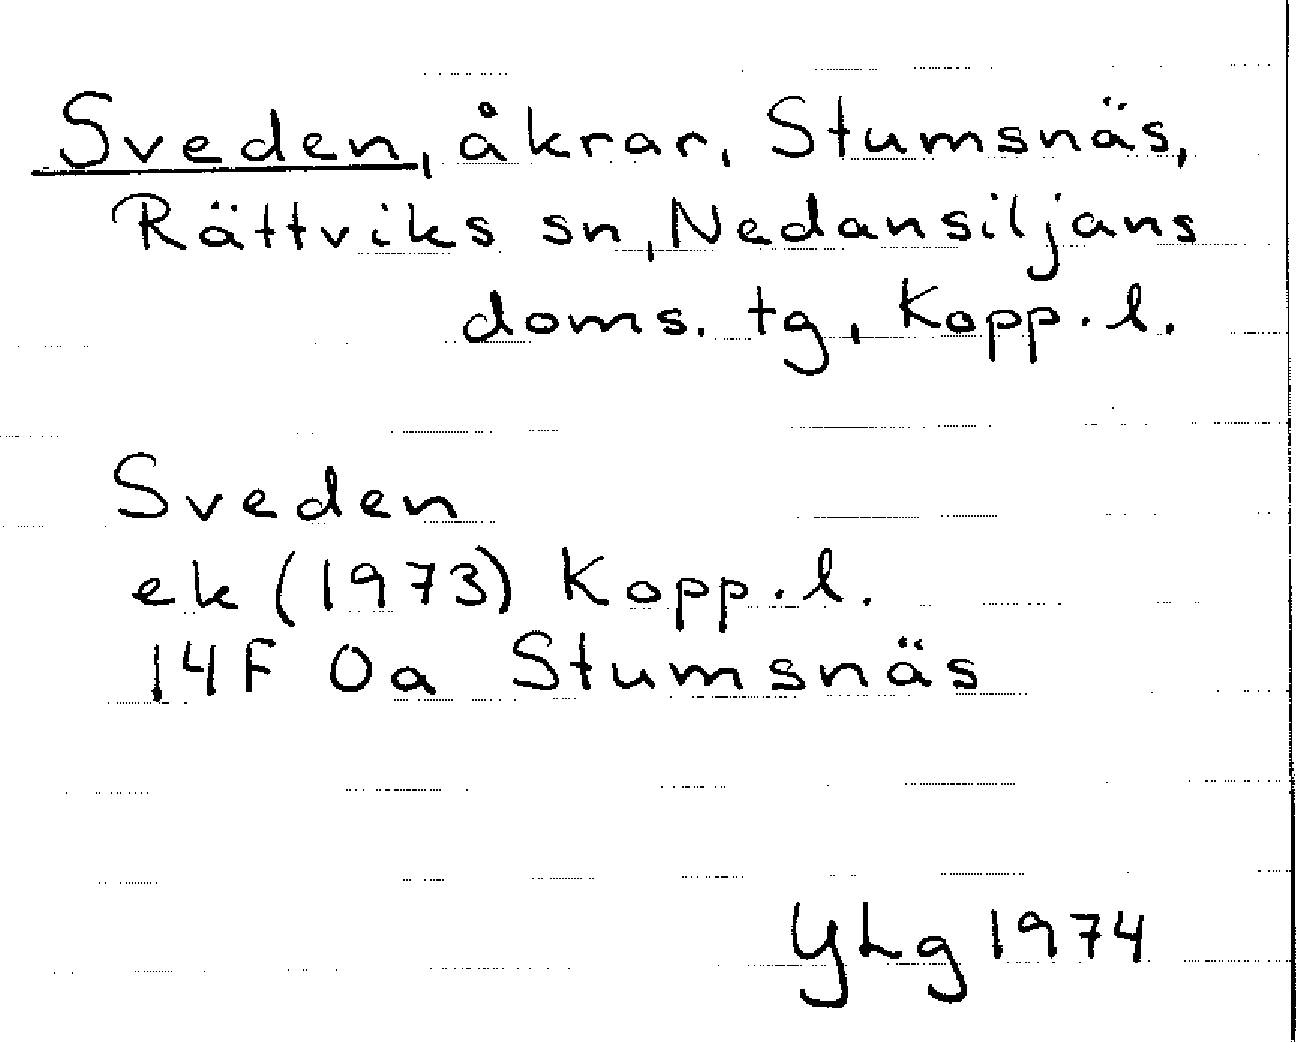 Sveden, åkrar, Stumsnäs,
Rättviks sn, Nedansiljans
doms. tg, Kopp. l.
Sveden
ek (1973) Kopp. l.
14F 0a Stumsnäs
YLg 1974